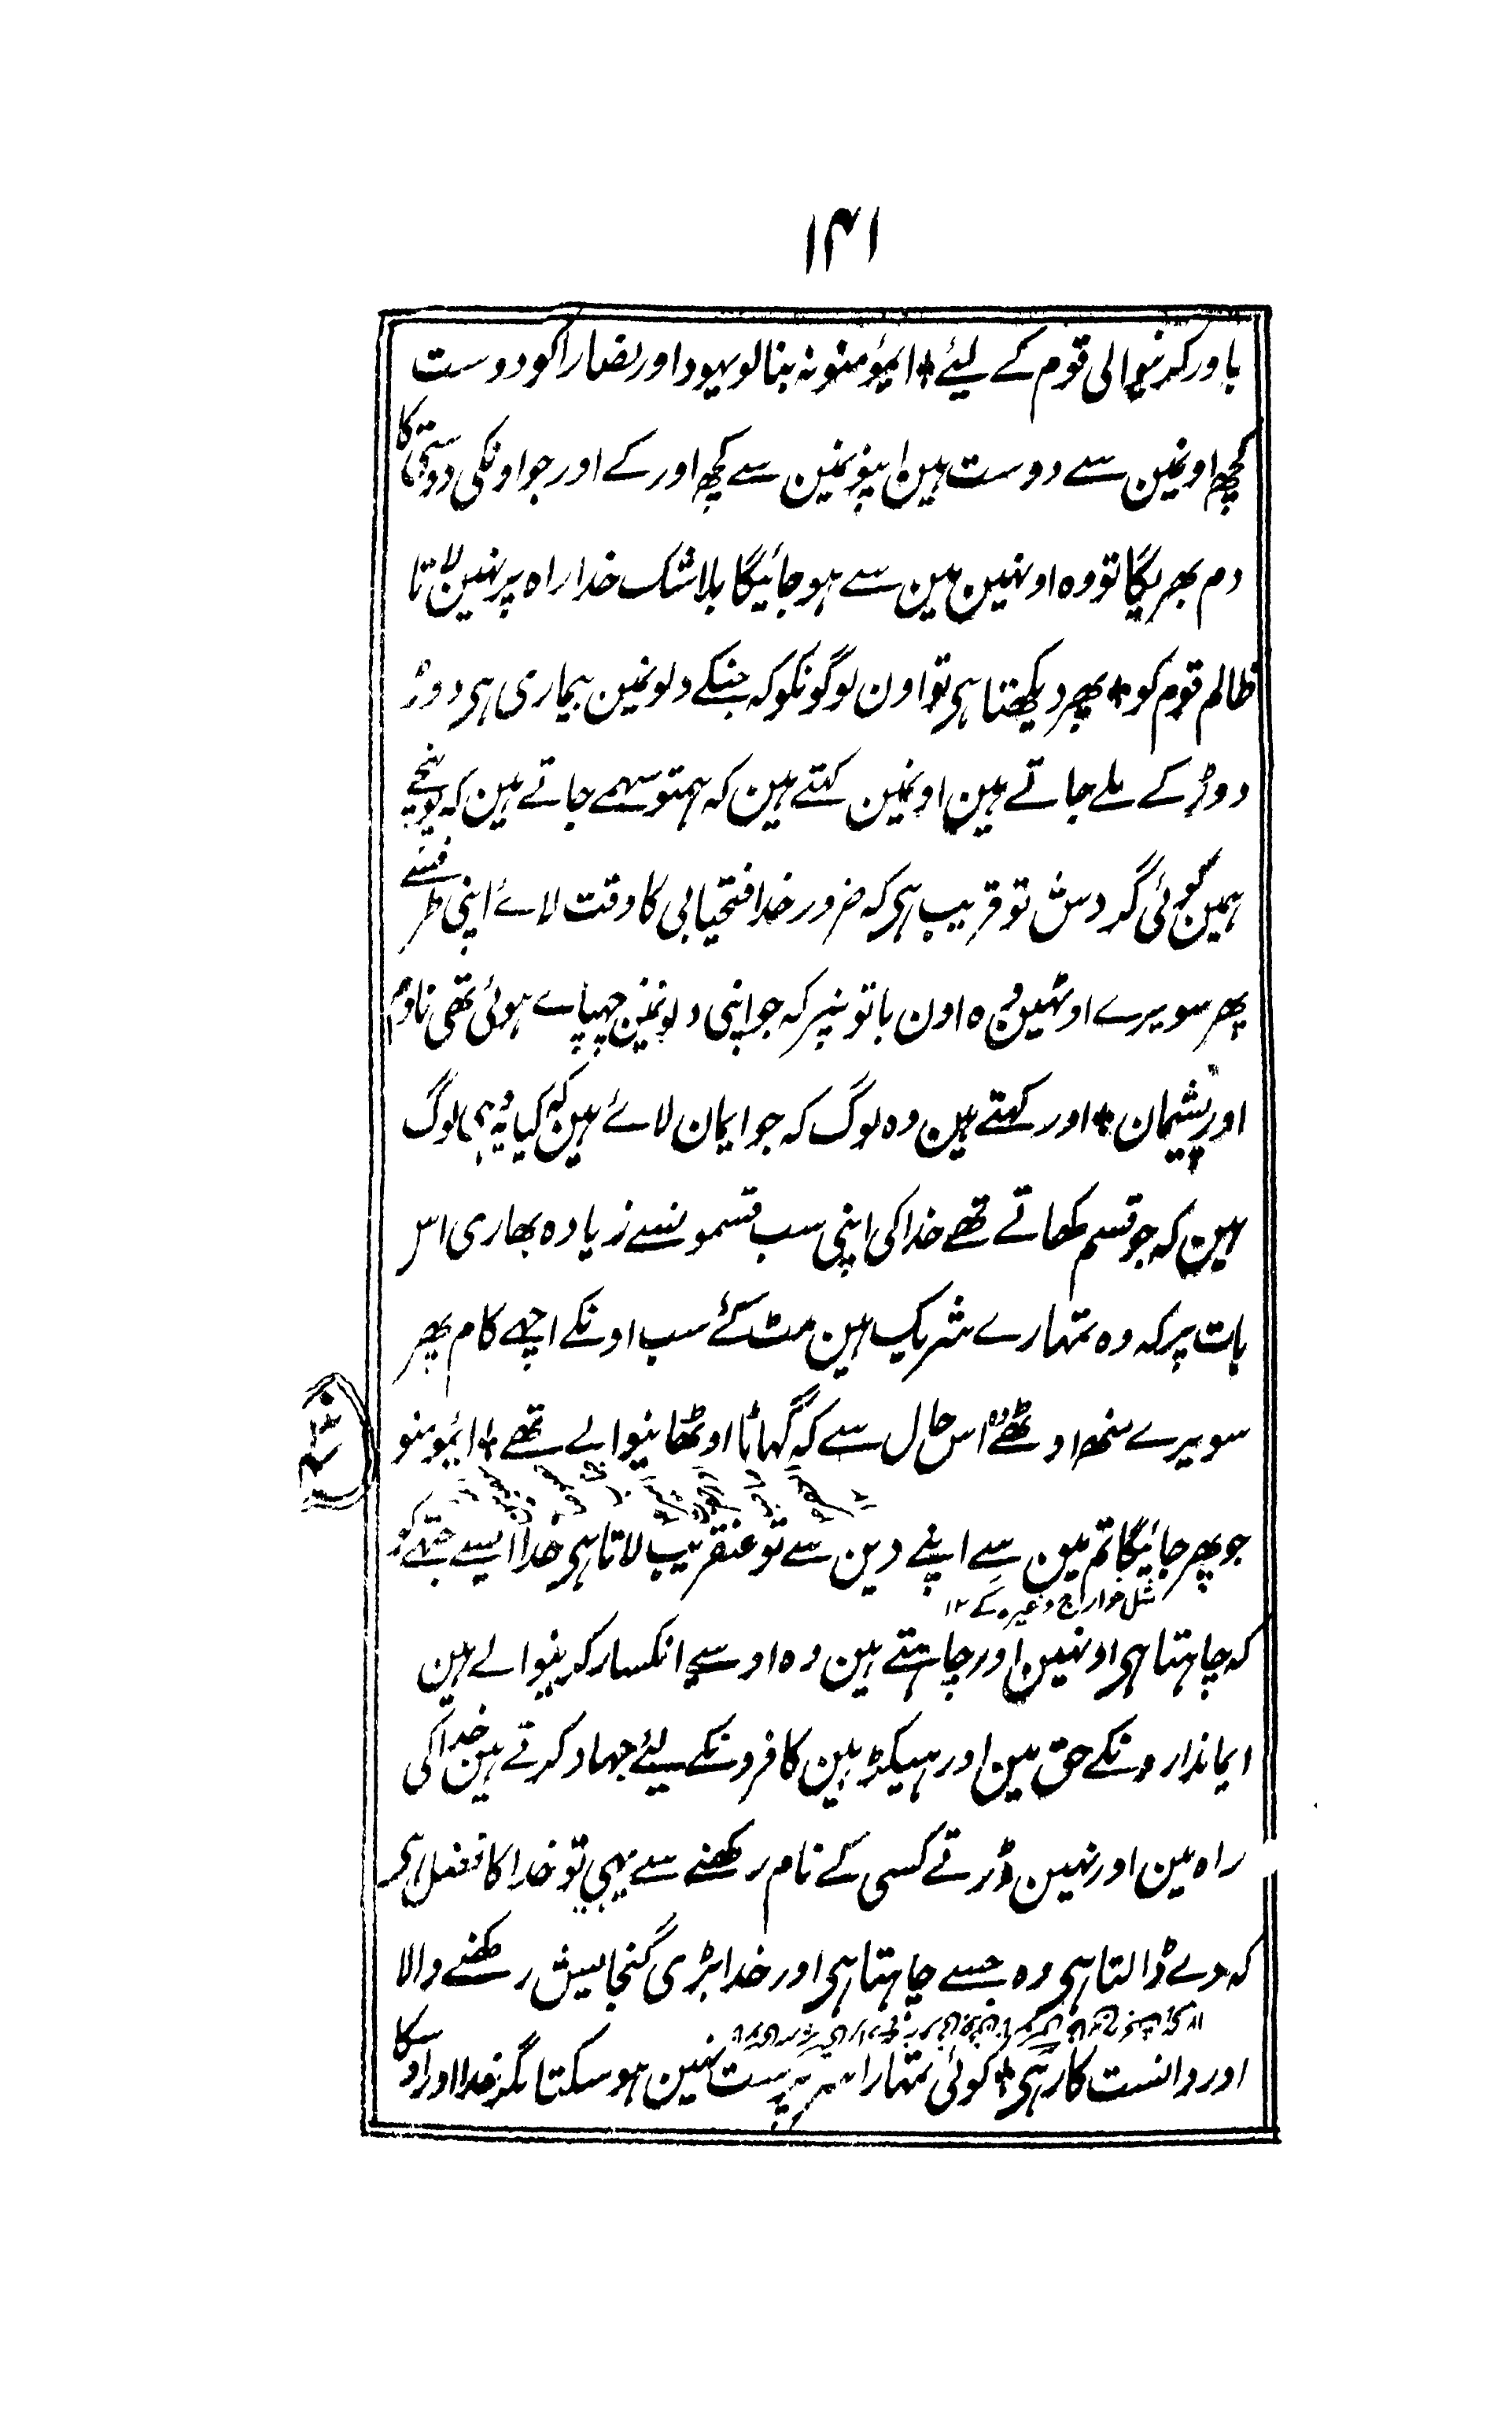 ۱۴۱
باور کرنیوالی قوم کے لیئے ٭ ایمؤمنو نہ بنالو یہود اور نصارا کو دوست
کچھ اونمین سے دوست ہین اپنونمین سے کچھ اور کے اور جو اونکی دوستی کا
دم بھریگا تو وہ اونہین مین سے ہو جائیگا بلاشک خدا راہ پر نہین لاتا
ظالم قوم کو ٭ پھر دیکھتا ہی تو اون لوگونکو کہ جنکے دلونمین بیماری ہی دوڑ
دوڑ کے ملے جاتے ہین اونمین کہتے ہین کہ ہمتو سہمے جاتے ہین کہ پہونچے
ہمین کوئی گردش تو قریب ہی کہ ضرور خدا فتحیابی کا وقت لائے اپنی طرفسے
پھر سویرے اوٹھین وہ اون باتونپر کہ جو اپنی دلونمین چھپاے ہوئی تھی نادم
اور پشیمان ٭ اور کہتے ہین وہ لوگ کہ جو ایمان لائے ہین کہ کیا یہ وہی لوگ
ہین کہ جو قسم کھاتے تھے خدا کی اپنی سب قسمونسے زیادہ بھاری اس
بات پر کہ وہ تمہارے شریک ہین مٹ گئے سب اونکے اچھے کام پھر
سویرے منھ اوٹھے اس حال سے کہ گہاٹا اوٹھانیوالے تھے ٭ ایمومنو
جو پھر جائیگا تم مین سے اپنے دین سے تو عنقریب لاتا ہی خدا ایسے جتھے کو
مثل خوارج وغیرہ کے ۱۲
کہ چاہتا ہی اونہین اور چاہتے ہین وہ اوسے انکسار کرنیوالے ہین
ایماندارونکے حق مین اور ہیکڑ ہین کافرونکے لیئے جہاد کرتے ہین خدا کی
راہ مین اور نہین ڈرتے کسی کے نام رکھنے سے یہی تو خدا کا فضل ہی
کہ دے ڈالتا ہی وہ جسے چاہتا ہی اور خدا بڑی گنجایش رکھنے والا
اور دانست کار ہی ٭ کوئی تمہارا سرپرست نہین ہو سکتا مگر خدا اور اوسکا